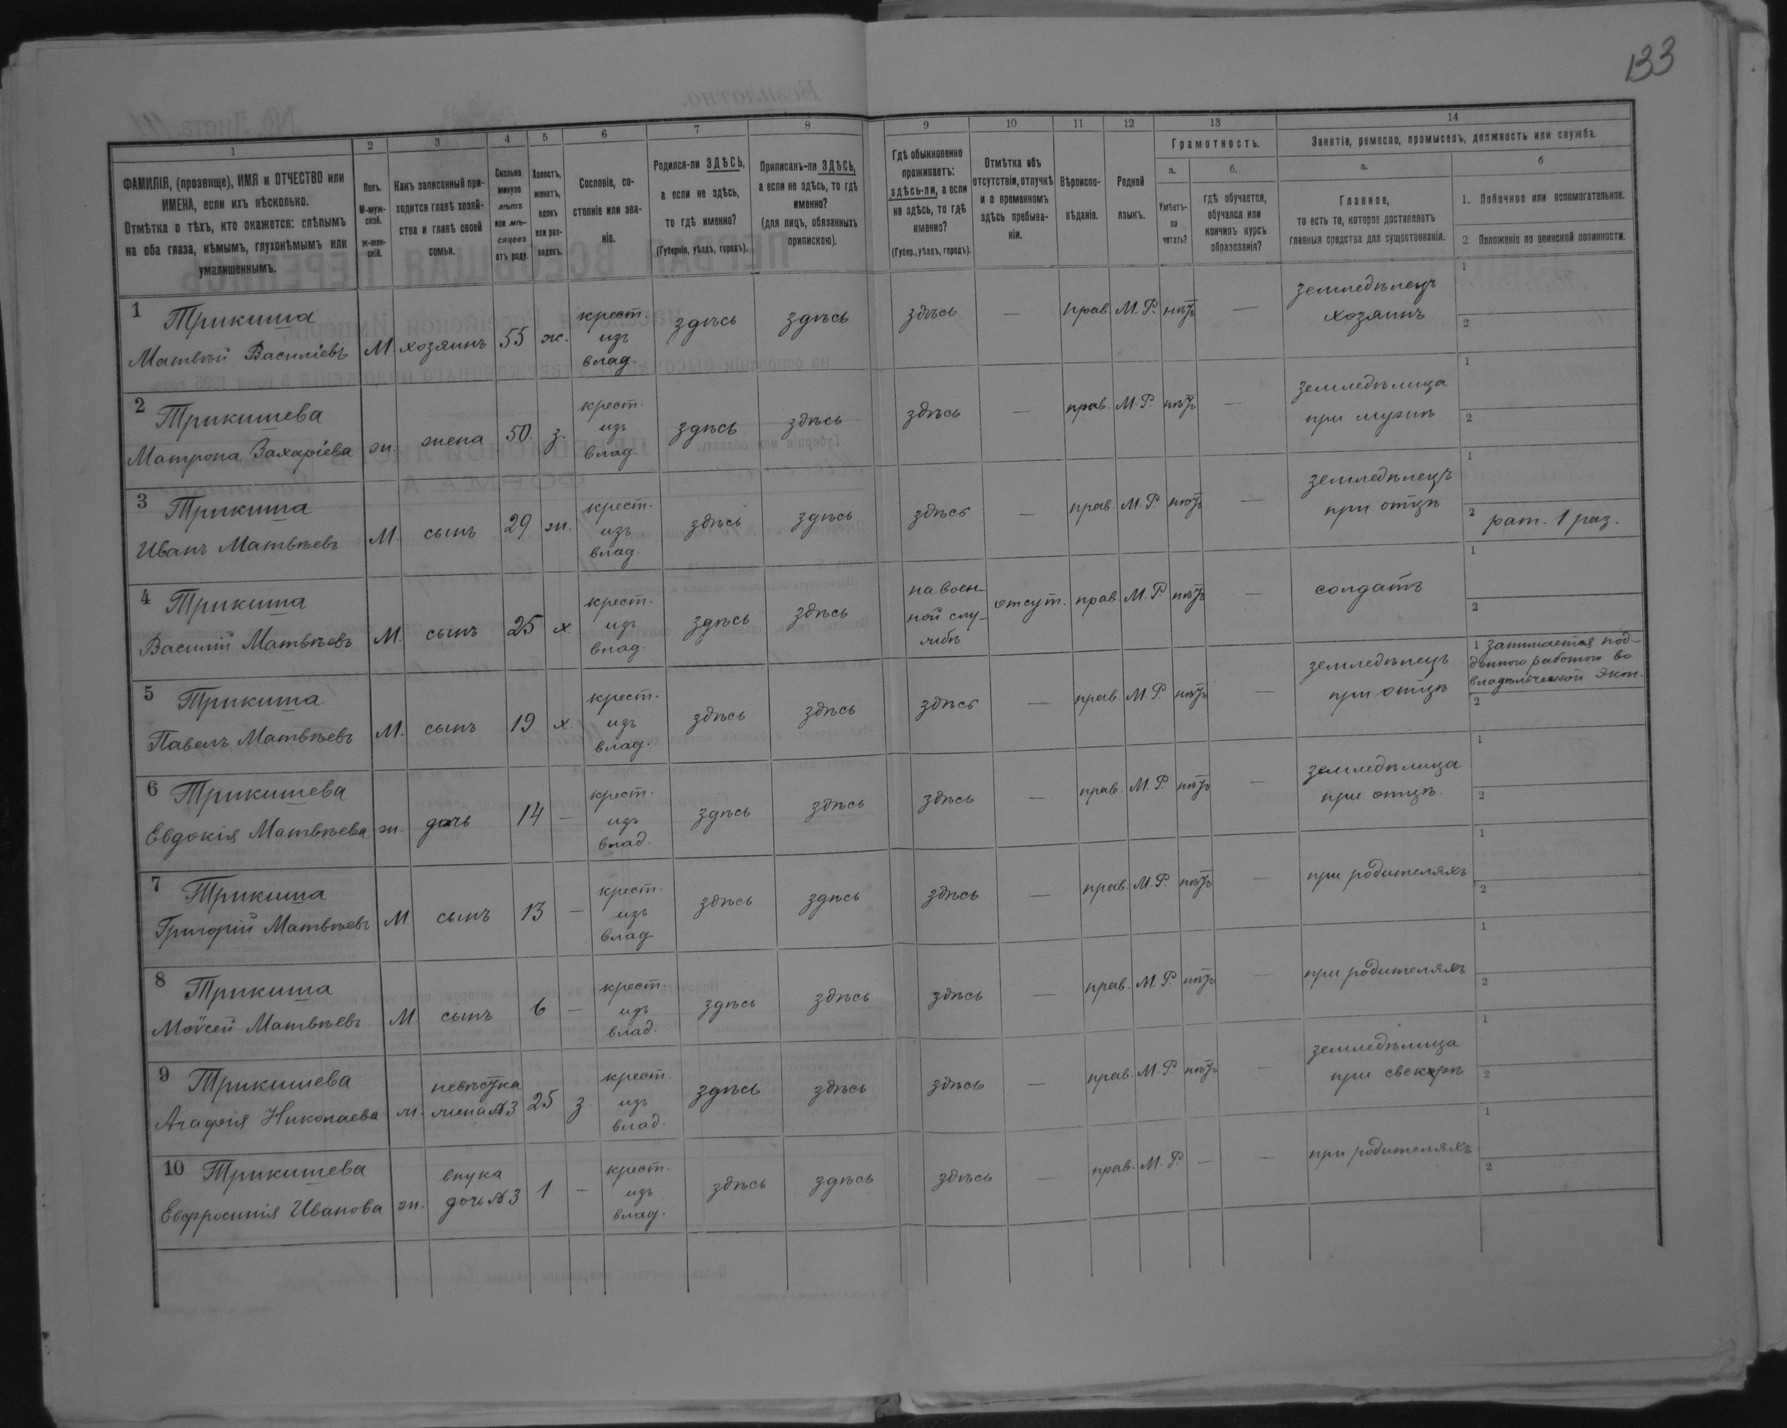 133
1 2 3 4 5 6 7 8 9 10 11 12 13 14
ФАМИЛІЯ, (прозвище), ИМЯ и ОТЧЕСТВО или ИМЕНА, если ихъ нѣсколько.
Отмѣтка о тѣхъ, кто окажется: слѣпымъ на оба глаза, нѣмымъ, глухонѣмымъ или умалишеннымъ.
Полъ. М-муж-ской. ж-жен-скій.
Какъ записанный при-ходится главѣ хозяй-ства и главѣ своей семьи.
Сколько минуло лѣтъ или мѣ-сяцевъ отъ роду.
Холостъ, женатъ, вдовъ или раз-веденъ.
Сословіе, со-стояніе или зва-ніе.
Родился-ли ЗДѢСЬ, а если не здѣсь, то гдѣ именно? (Губернія, уѣздъ, городъ).
Приписанъ-ли ЗДѢСЬ, а если не здѣсь, то гдѣ именно? (для лицъ, обязанныхъ припискою).
Гдѣ обыкновенно проживаетъ: здѣсь-ли, а если не здѣсь, то гдѣ именно? (Губер., уѣздъ, городъ).
Отмѣтка объ отсутствіи, отлучкѣ и о временномъ здѣсь пребыва-ніи.
Вѣроиспо-вѣданіе.
Родной языкъ.
Грамотность.
а. Умѣетъ-ли читать?
б. гдѣ обучается, обучался или кончилъ курсъ образованія?
Занятіе, ремесло, промыселъ, должность или служба.
а. Главное, то есть то, которое доставляетъ главныя средства для существованія.
б 1. Побочное или вспомогательное.
2 Положеніе по воинской повинности.
1 Трикиша Матвѣй Василіевъ М хозяинъ 55 ж. крест. изъ влад. здѣсь здѣсь здѣсь — прав. М. Р. нѣтъ — земледѣлецъ хозяинъ 1 2
2 Трикишева Матрона Захаріева ж. жена 50. з. крест. изъ влад. здѣсь здѣсь здѣсь — прав. М. Р. нѣтъ — земледѣлица при мужѣ 1 2
3 Трикиша Иванъ Матвѣевъ М. сынъ 29 ж. крест. изъ влад. здѣсь здѣсь здѣсь — прав. М. Р. нѣтъ — земледѣлецъ при отцѣ 1 2 рат. 1 раз.
4 Трикиша Василій Матвѣевъ М. сынъ 25 х крест. изъ влад. здѣсь здѣсь на воен-ной слу-жбѣ отсут. прав. М. Р нѣтъ — солдатъ 1 2
5 Трикиша Павелъ Матвѣевъ М. сынъ 19 х. крест. изъ влад. здѣсь здѣсь здѣсь — прав. М. Р. нѣтъ — земледѣлецъ при отцѣ 1 занимается под-ѣнною работою во владѣльческой экон. 2
6 Трикишева Евдокія Матвѣева ж. дочь 14 — крест. изъ влад. здѣсь здѣсь здѣсь — прав. М. Р. нѣтъ — земледѣлица при отцѣ. 1 2
7 Трикиша Григорій Матвѣевъ М. сынъ 13 — крест. изъ влад здѣсь здѣсь здѣсь — прав. М. Р. нѣтъ — при родителяхъ 1 2
8 Трикиша Моѵсей Матвѣевъ М сынъ 6 — крест. изъ влад. здѣсь здѣсь здѣсь — прав. М. Р. нѣтъ — при родителяхъ 1 2
9 Трикишева Агафія Николаева ж. невѣстка жена №3 25 з крест. изъ влад. здѣсь здѣсь здѣсь — прав. М. Р. нѣтъ — земледѣлица при свекорѣ 1 2
10 Трикишева Евфросинія Иванова ж. внука дочь №3 1 — крест. изъ влад. здѣсь здѣсь здѣсь — прав. М. Р. — — при родителяхъ 1 2